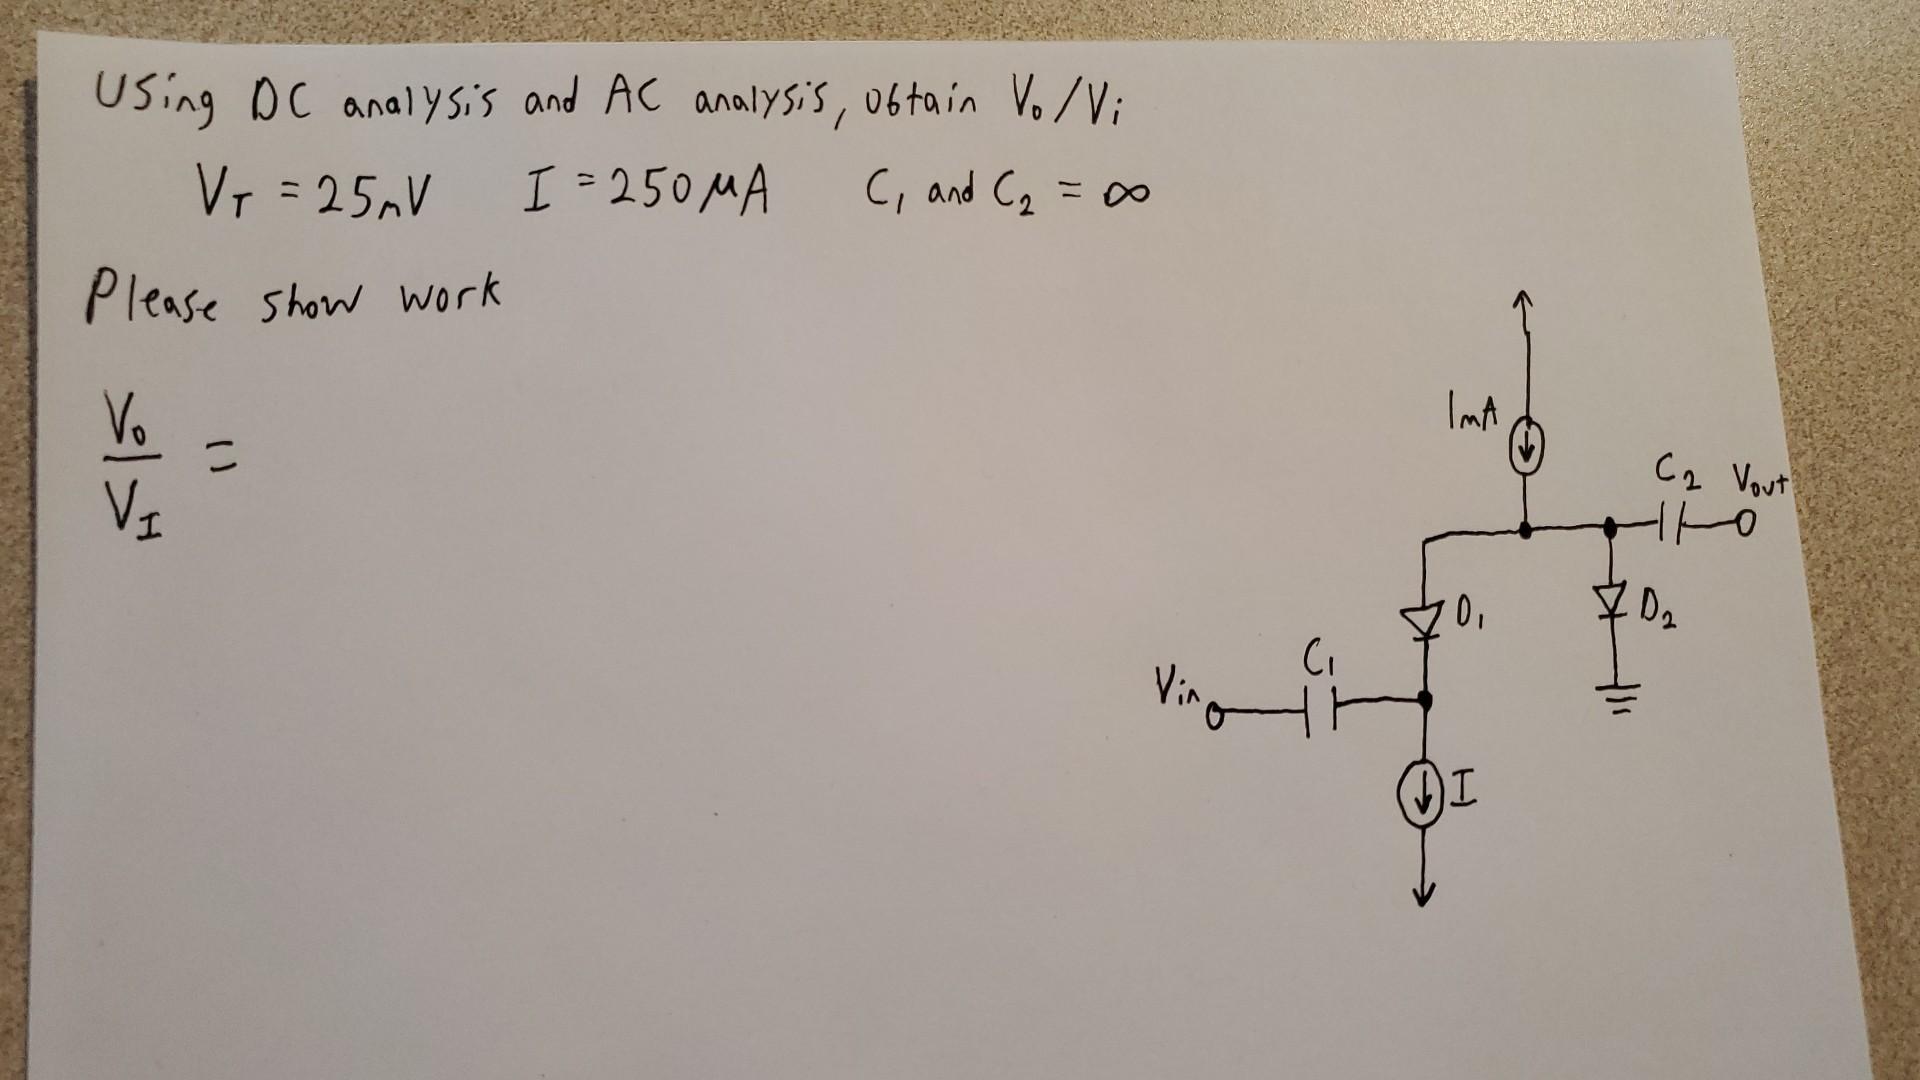 Using DC analysis and AC analysis, obtain Vo/Vi
VT = 25mV I = 250 µA C1 and C2 = ∞
Please show work
Vo
=
VI
1mA
C2 Vout
D1
D2
C1
Vin
I